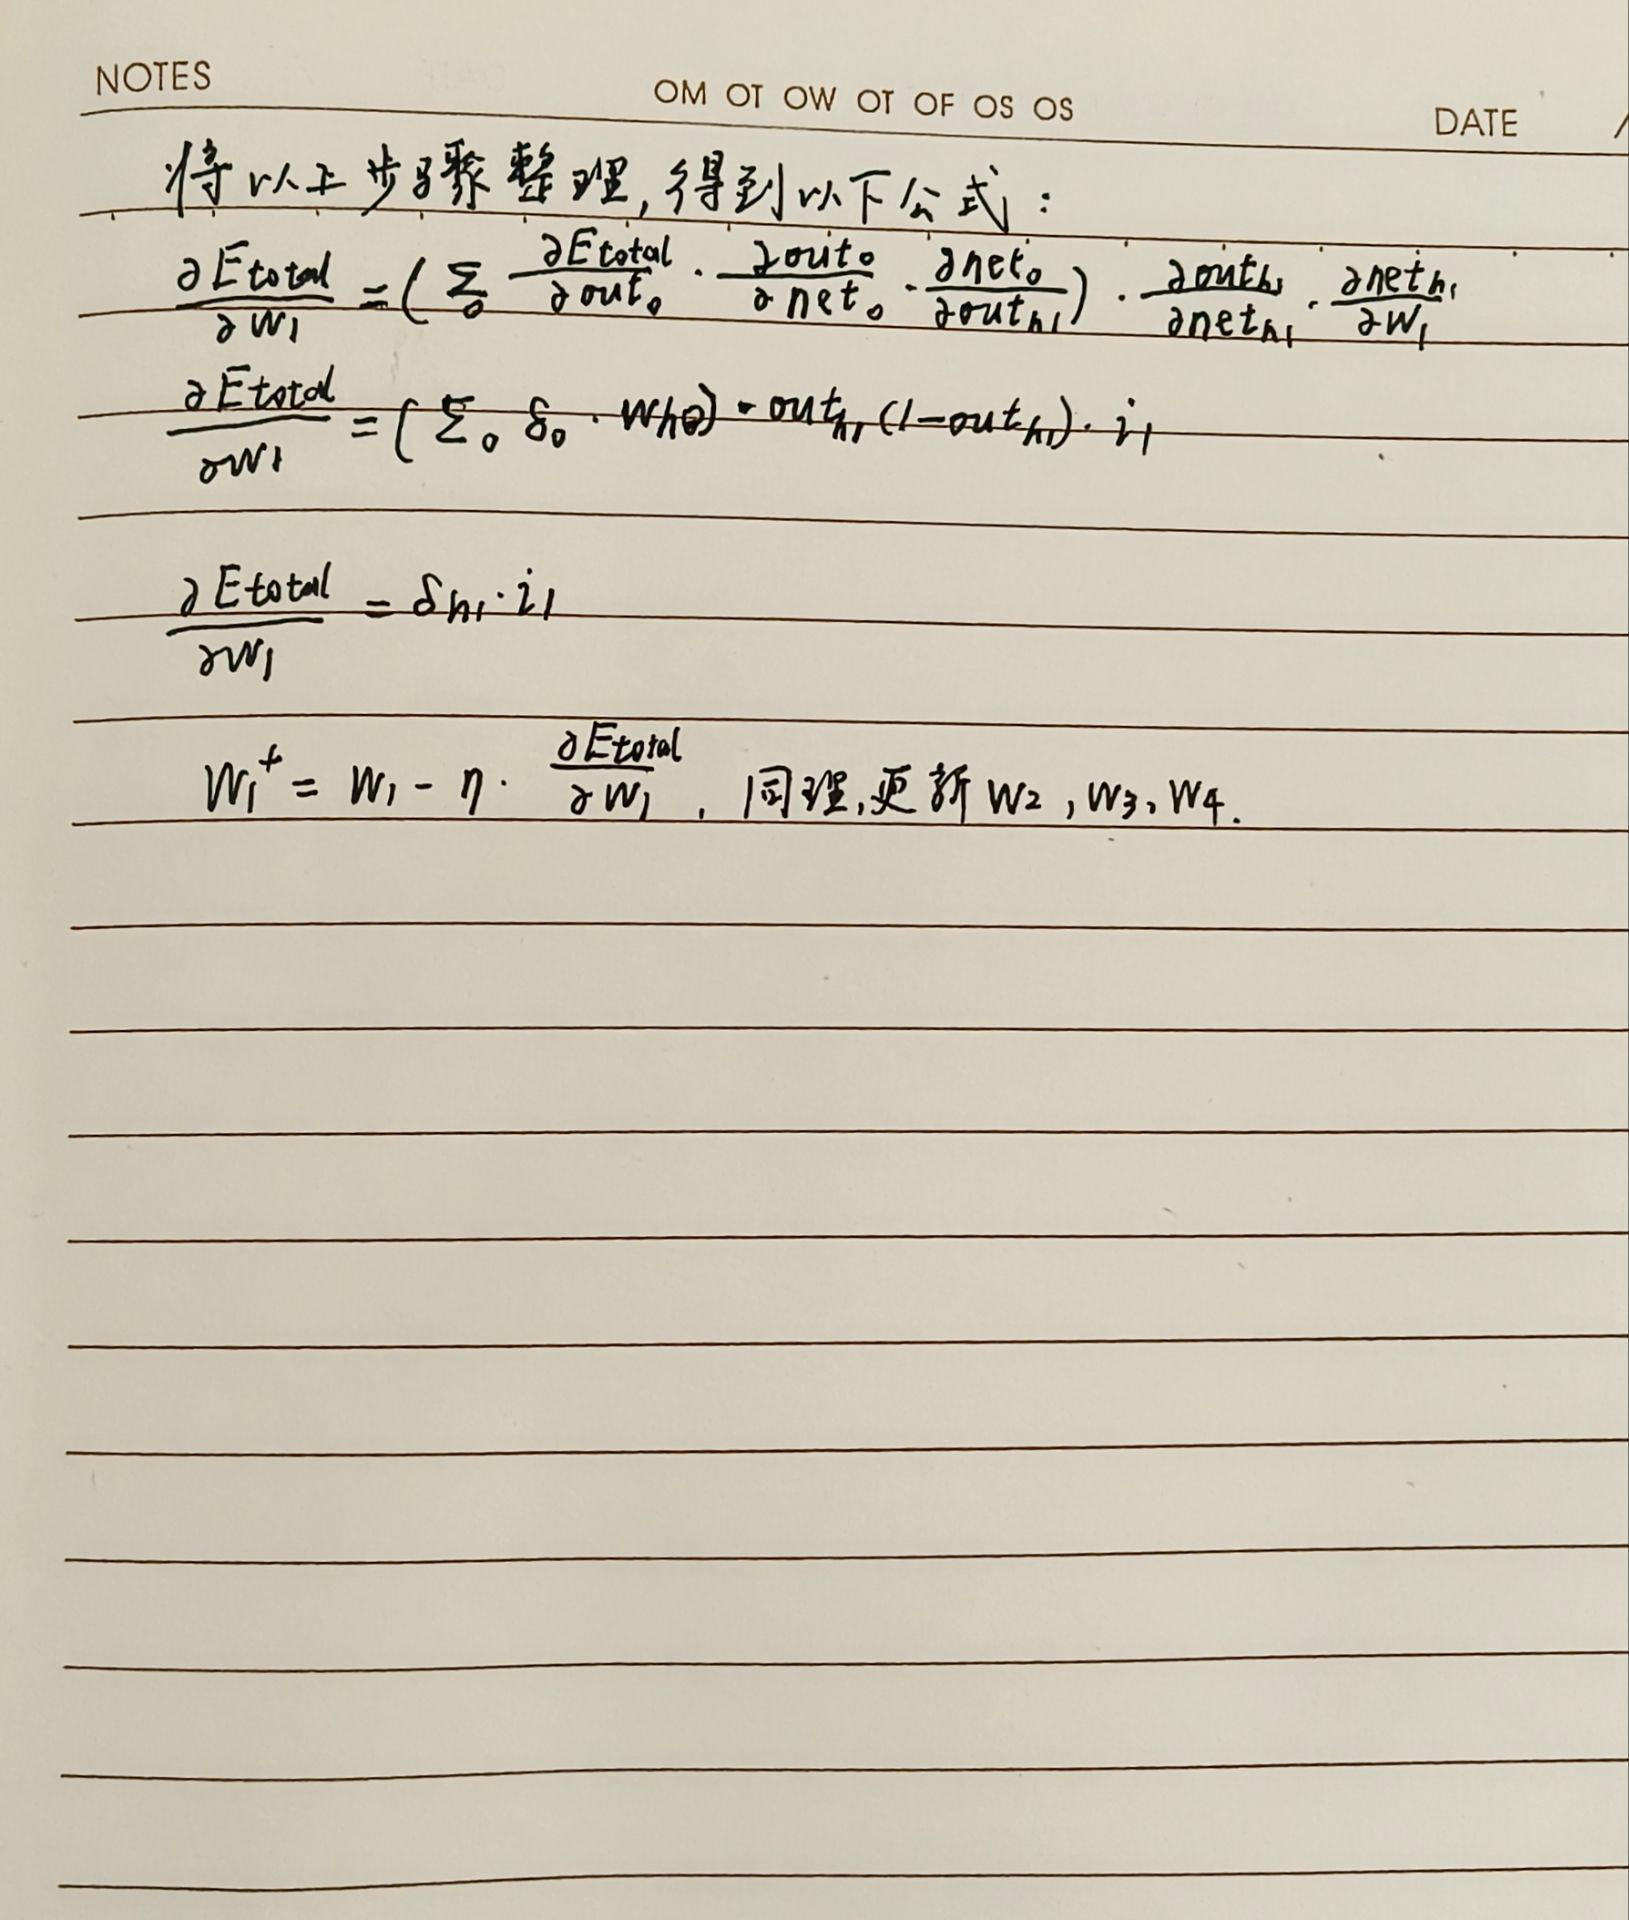 NOTES OM OT OW OT OF OS OS DATE /
将以上步骤整理,得到以下公式:
∂Etotal/∂w₁ = (Σₒ ∂Etotal/∂outₒ · ∂outₒ/∂netₒ · ∂netₒ/∂outₕ₁) · ∂outₕ₁/∂netₕ₁ · ∂netₕ₁/∂w₁
∂Etotal/∂w₁ = (Σₒ δₒ · whο) · outₕ₁(1-outₕ₁) · i₁
∂Etotal/∂w₁ = δₕ₁ · i₁
w₁⁺ = w₁ - η · ∂Etotal/∂w₁ . 同理,更新w₂,w₃、w₄.